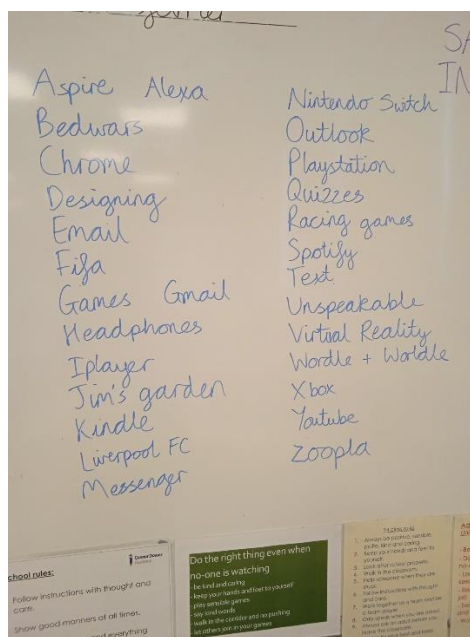 Aspire Alexa
Bedwars
Chrome
Designing
Email
Fifa
Games Gmail
Headphones
Iplayer
Jim's garden
Kindle
Liverpool FC
Messenger
Nintendo Switch
Outlook
Playstation
Quizzes
Racing games
Spotify
Text
Unspeakable
Virtual Reality
Wordle + Worldle
Xbox
Youtube
Zoopla
SA
IN
chool rules:
Follow instructions with thought and
care.
Show good manners at all times.
and everything
Do the right thing even when
no-one is watching
- be kind and caring
- keep your hands and feet to yourself
- play sensible games
- say kind words
- walk in the corridor and no pushing
- let others join in your games